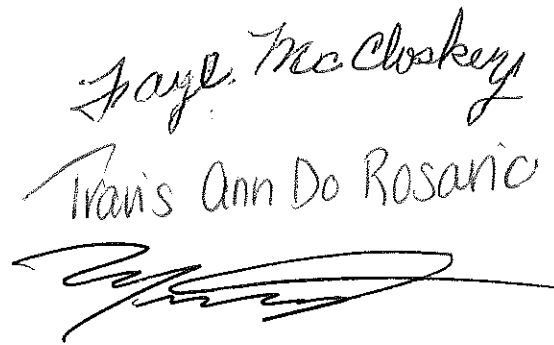 Faye McCloskey
Travis Ann Do Rosario